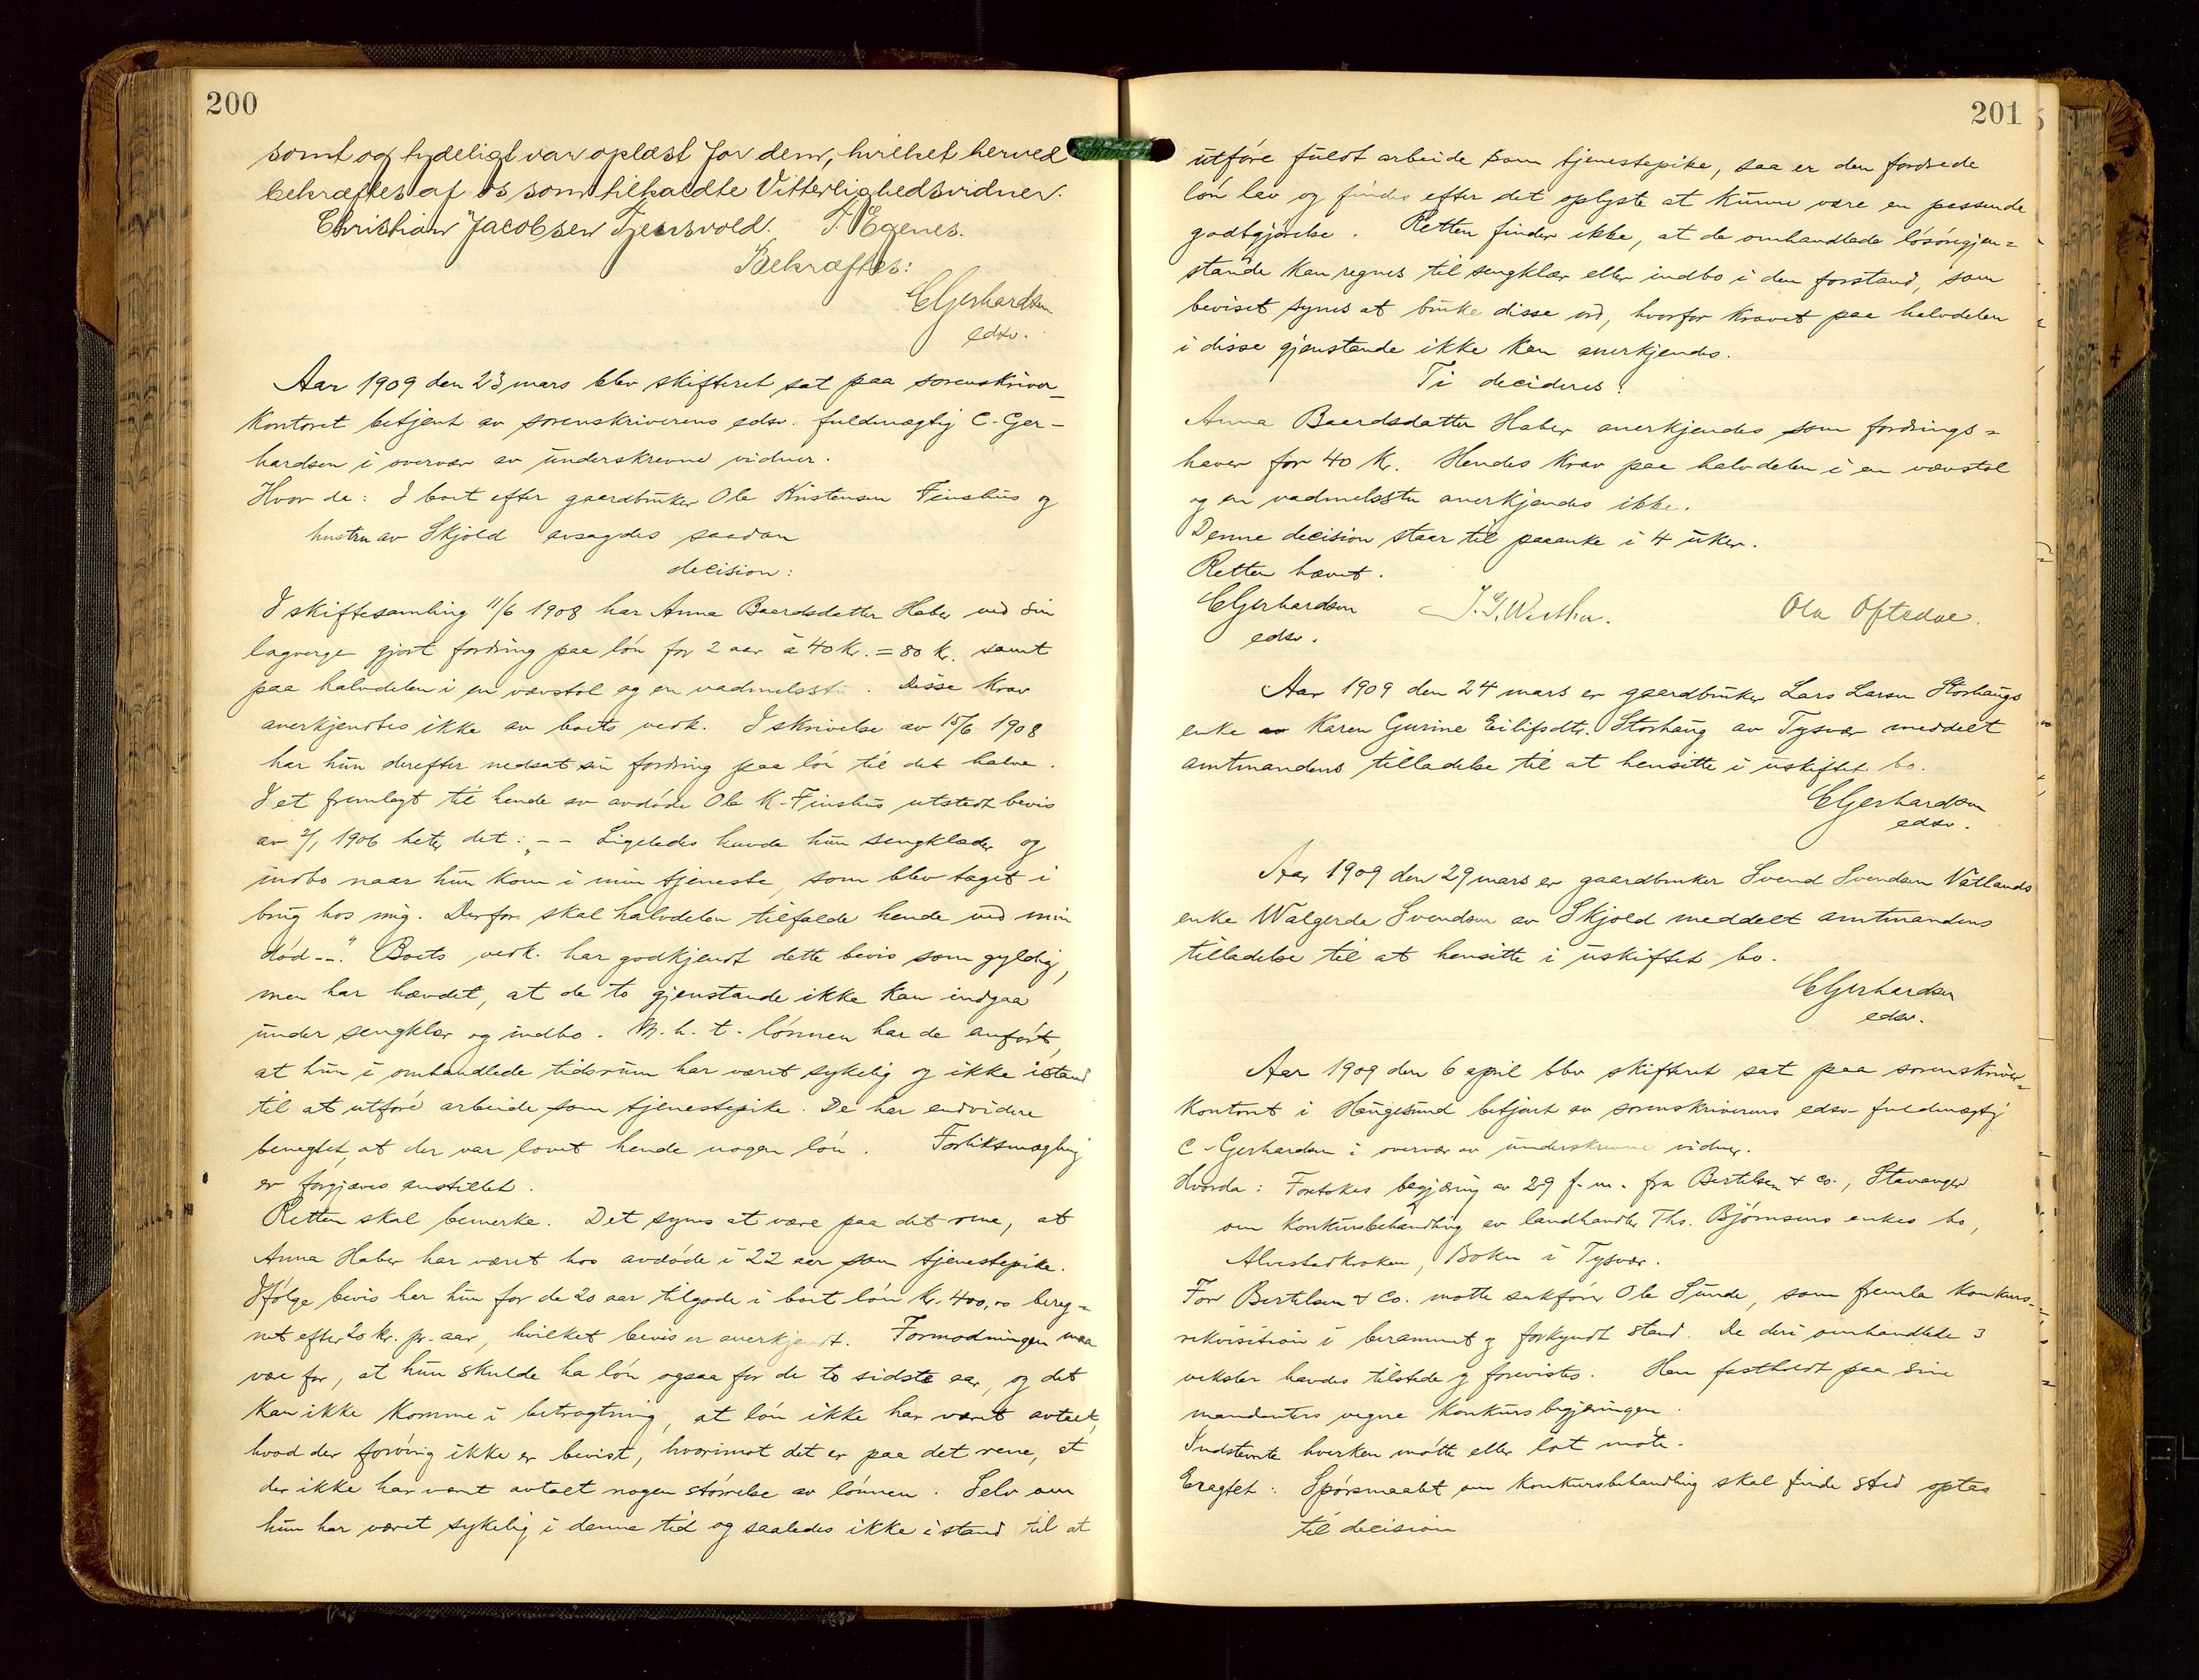 200
somt og tydeligt var oplæst for dem, hvilket herved
bekræftes af os som tilkaldte Vitterlighedsvidner.
Christian Jacobsen T. Egenes.
Bekræftes:
C Gerhardsen
edsv.
Aar 1909 den 23 mars blev skifteret sat paa sorenskriver-
kontoret betjent av sorenskriverens edsv. fuldmægtig C. Ger-
hardsen i overvær av underskrevne vidner.
Hvor da: I boet efter gaardbruker Ole Kristensen Finshus og
hustru av Skjold avsagdes saadan
decision:
I skiftesamling 11/6 1908 har Anna Baardsdatter Haber ved sin
lagverge gjort fordring paa løn for 2 aar à 40 kr. = 80 kr. samt
paa halvdelen i en vævstol og en vadmelsstu. Disse krav
anerkjendtes ikke av boets vedk. I skrivelse av 15/6 1908
har hun derefter nedsat sin fordring paa løn til det halve.
I et fremlagt til hende av avdøde Ole K. Finshus utstedt bevis
av 2/1 1906 heter det: „-- Ligeledes havde hun sengklæder og
indbo naar hun kom i min tjeneste, som blev taget i
brug hos mig. Derfor skal halvdelen tilfalde hende ved min
død --." Boets vedk. har godkjendt dette bevis som gyldig,
men har hævdet, at de to gjenstande ikke kan indgaa
under sengklær og indbo. M. h. t. lønnen har de anført,
at hun i omhandlede tidsrum har været sykelig og ikke istand
til at utføre arbeide som tjenestepike. De har endvidere
benegtet, at der var lovet hende nogen løn. Forliksmægling
er forgjæves anstillet.
Retten skal bemerke. Det synes at være paa det rene, at
Anna Haber har været hos avdøde i 22 aar som tjenestepike.
Ifølge bevis har hun for de 20 aar tilgode i boet løn kr. 400,00 bereg-
net efter 20 kr. pr. aar, hvilket bevis er anerkjendt. Formodningen maa
være for, at hun skulde ha løn ogsaa for de to sidste aar, og det
kan ikke komme i betragtning, at løn ikke har været avtalt,
hvad der forøvrig ikke er bevist, hvorimot det er paa det rene, at
der ikke har været avtalt nogen størrelse av lønnen. Selv om
hun har været sykelig i denne tid og saaledes ikke istand til at
201
utføre fuldt arbeide som tjenestepike, saa er den fordrede
løn lav og findes efter det oplyste at kunne være en passende
godtgjørelse. Retten finder ikke, at de omhandlede løsøregjen=
stande kan regnes til sengklær eller indbo i den forstand, som
beviset synes at bruke disse ord, hvorfor kravet paa halvdelen
i disse gjenstande ikke kan anerkjendes.
Ti decideres:
Anna Baardsdatter Haber anerkjendes som fordrings=
haver for 40 kr. Hendes krav paa halvdelen i en vævstol
og en vadmelsstu anerkjendes ikke.
Denne decision staar til paaanke i 4 uker.
Retten hævet.
C Gerhardsen Ola Oftedal.
edsv.
Aar 1909 den 24 mars er gaardbruker Lars Larsen Storhaugs
enke Karen Gurine Eilifsdtr. Storhaug av Tysvær meddelt
amtmandens tilladelse til at hensitte i uskiftet bo.
C Gerhardsen
edsv.
Aar 1909 den 29 mars er gaardbruker Svend Svendsen Vatlands
enke Walgerda Svendsen av Skjold meddelt amtmandens
tilladelse til at hensitte i uskiftet bo.
C Gerhardsen
edsv.
Aar 1909 den 6 april blev skifteret sat paa sorenskriver=
kontoret i Haugesund betjent av sorenskriverens edsv. fuldmægtig
C. Gerhardsen i overvær av underskrevne vidner.
Hvorda: Foretokes begjæring av 29 f. m. fra Bertelsen & Co., Stavanger
om konkursbehandling av landhandler Ths. Bjørnsens enkes bo,
Alvestadkroken, Bokn i Tysvær.
For Bertelsen & Co. møtte sakfører Ole Sunde, som fremla konkurs-
rekvisition i berammet og forkyndt stand. De deri omhandlede 3
veksler havdes tilstede og forevistes. Han fastholdt paa sine
mandanters vegne konkursbegjæringen.
Indstevnte hverken møtte eller lot møte.
Eragtet: Spørsmaalet om konkursbehandling skal finde sted optas
til decision